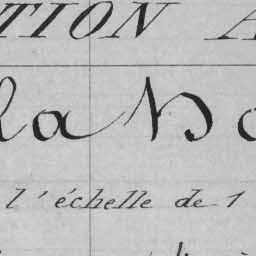 TION A
la Do
l'échelle de 1